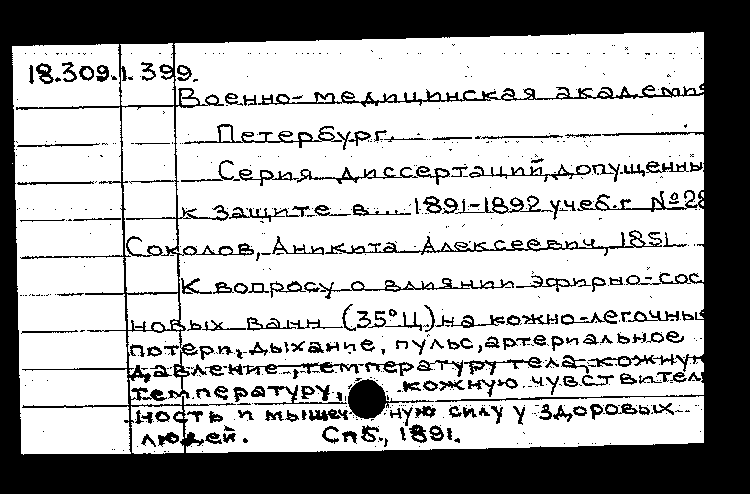 18.309.1.399.
Военно-медицинская академия
Петербург.
Серия диссертаций, допущенны
к защите в... 1891-1892 учеб.г №28
Соколов, Аникита Алексеевич, 1851
К вопросу о влиянии эфирно-сос
новых ванн (35°Ц) на кожно-легочные
потери, дыхание, пульс, артериальное
давление, температуру тела, кожную
температуру, кожную чувствитель
ность и мышечную силу у здоровых
людей. Спб., 1891.